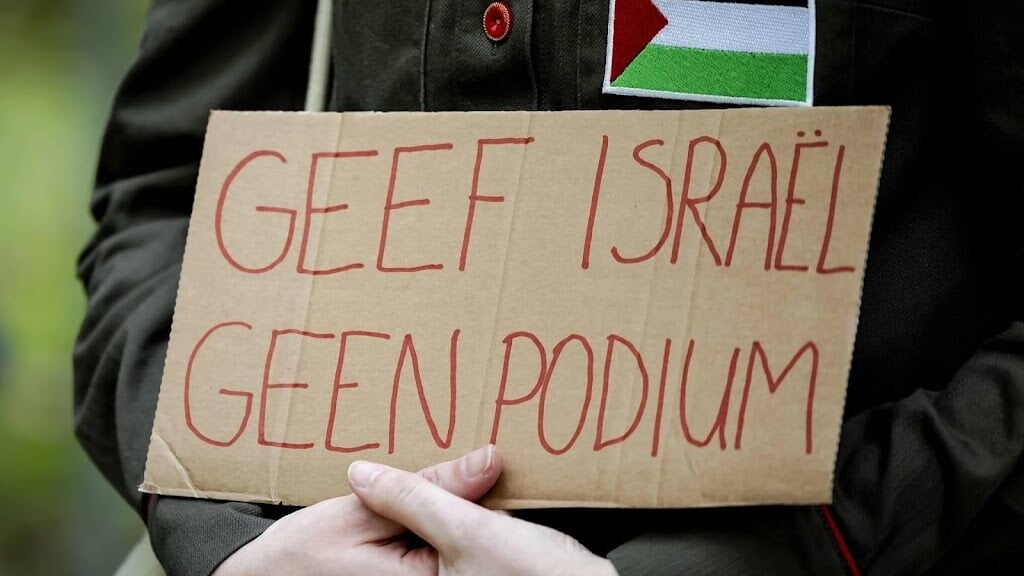 GEEF ISRAËL
GEEN PODIUM